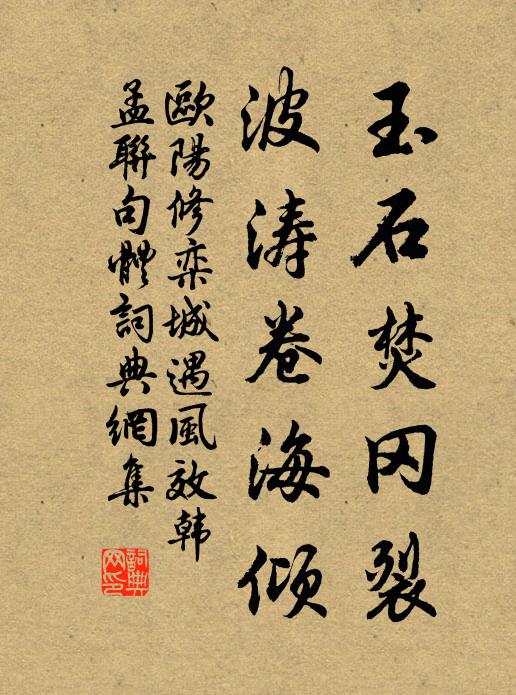 玉石焚冈裂
波涛卷海倾
歐陽修栾城遇風效韩
孟聯句體詞典網集
詞典網印